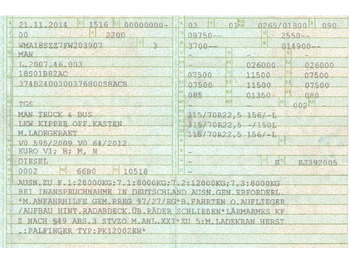 21.11.2014 1516 00000000- 03 01 0265/01890 090
00 2200 09750-- 2550--
WMA18SZZ7FW203907 3 3700-- 014900--
MAN - 026000 026000
L.2007.46.003 07500 11500 07500
18S01B82AC 07500 11500 07500
3748240030037680058ACB 085 01350 080
TGS 002
MAN TRUCK & BUS 315/70R22,5 156/-L
LKW KIPPER OFF.KASTEN 315/70R22,5 -150/L
M.LADEKRAFT 315/70R22,5 156/-L
VO 595/2009 VO 64/2012
EURO VI; B; M, N -
DIESEL H EJ392005
0002 66B0 10518
AUSN.ZU F.1:28000KG;7.1:8000KG;7.2:12000KG;7.3:8000KG
BEI INANSPRUCHNAHME IN DEUTSCHLAND AUSN.GEN.ERFORDERL.
*M.ANFAHRHILFE GEM.RREG 97/27/EG*B.FAHRTEN O.AUFLIEGER
/AUFBAU HINT.RADABDECK.ÜB.RÄDER SCHLIEßEN*LÄRMARMES KF
Z NACH §49 ABS.3 STVZO M.ANL.XXI*ZU 5:M.LADEKRAN HERST
.:PALFINGER TYP:PK12002EH*